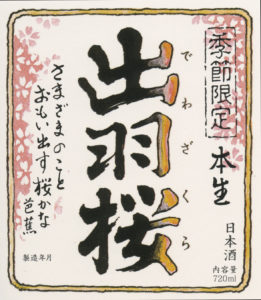 季節限定
本生
日本酒
内容量
720ml
出羽桜
でわざくら
さまざまのこと
おもい出す桜かな
芭蕉
製造年月